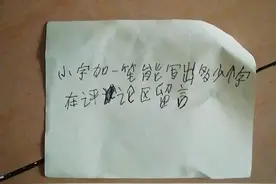 小字加一笔能写出多少个字
在评论区留言